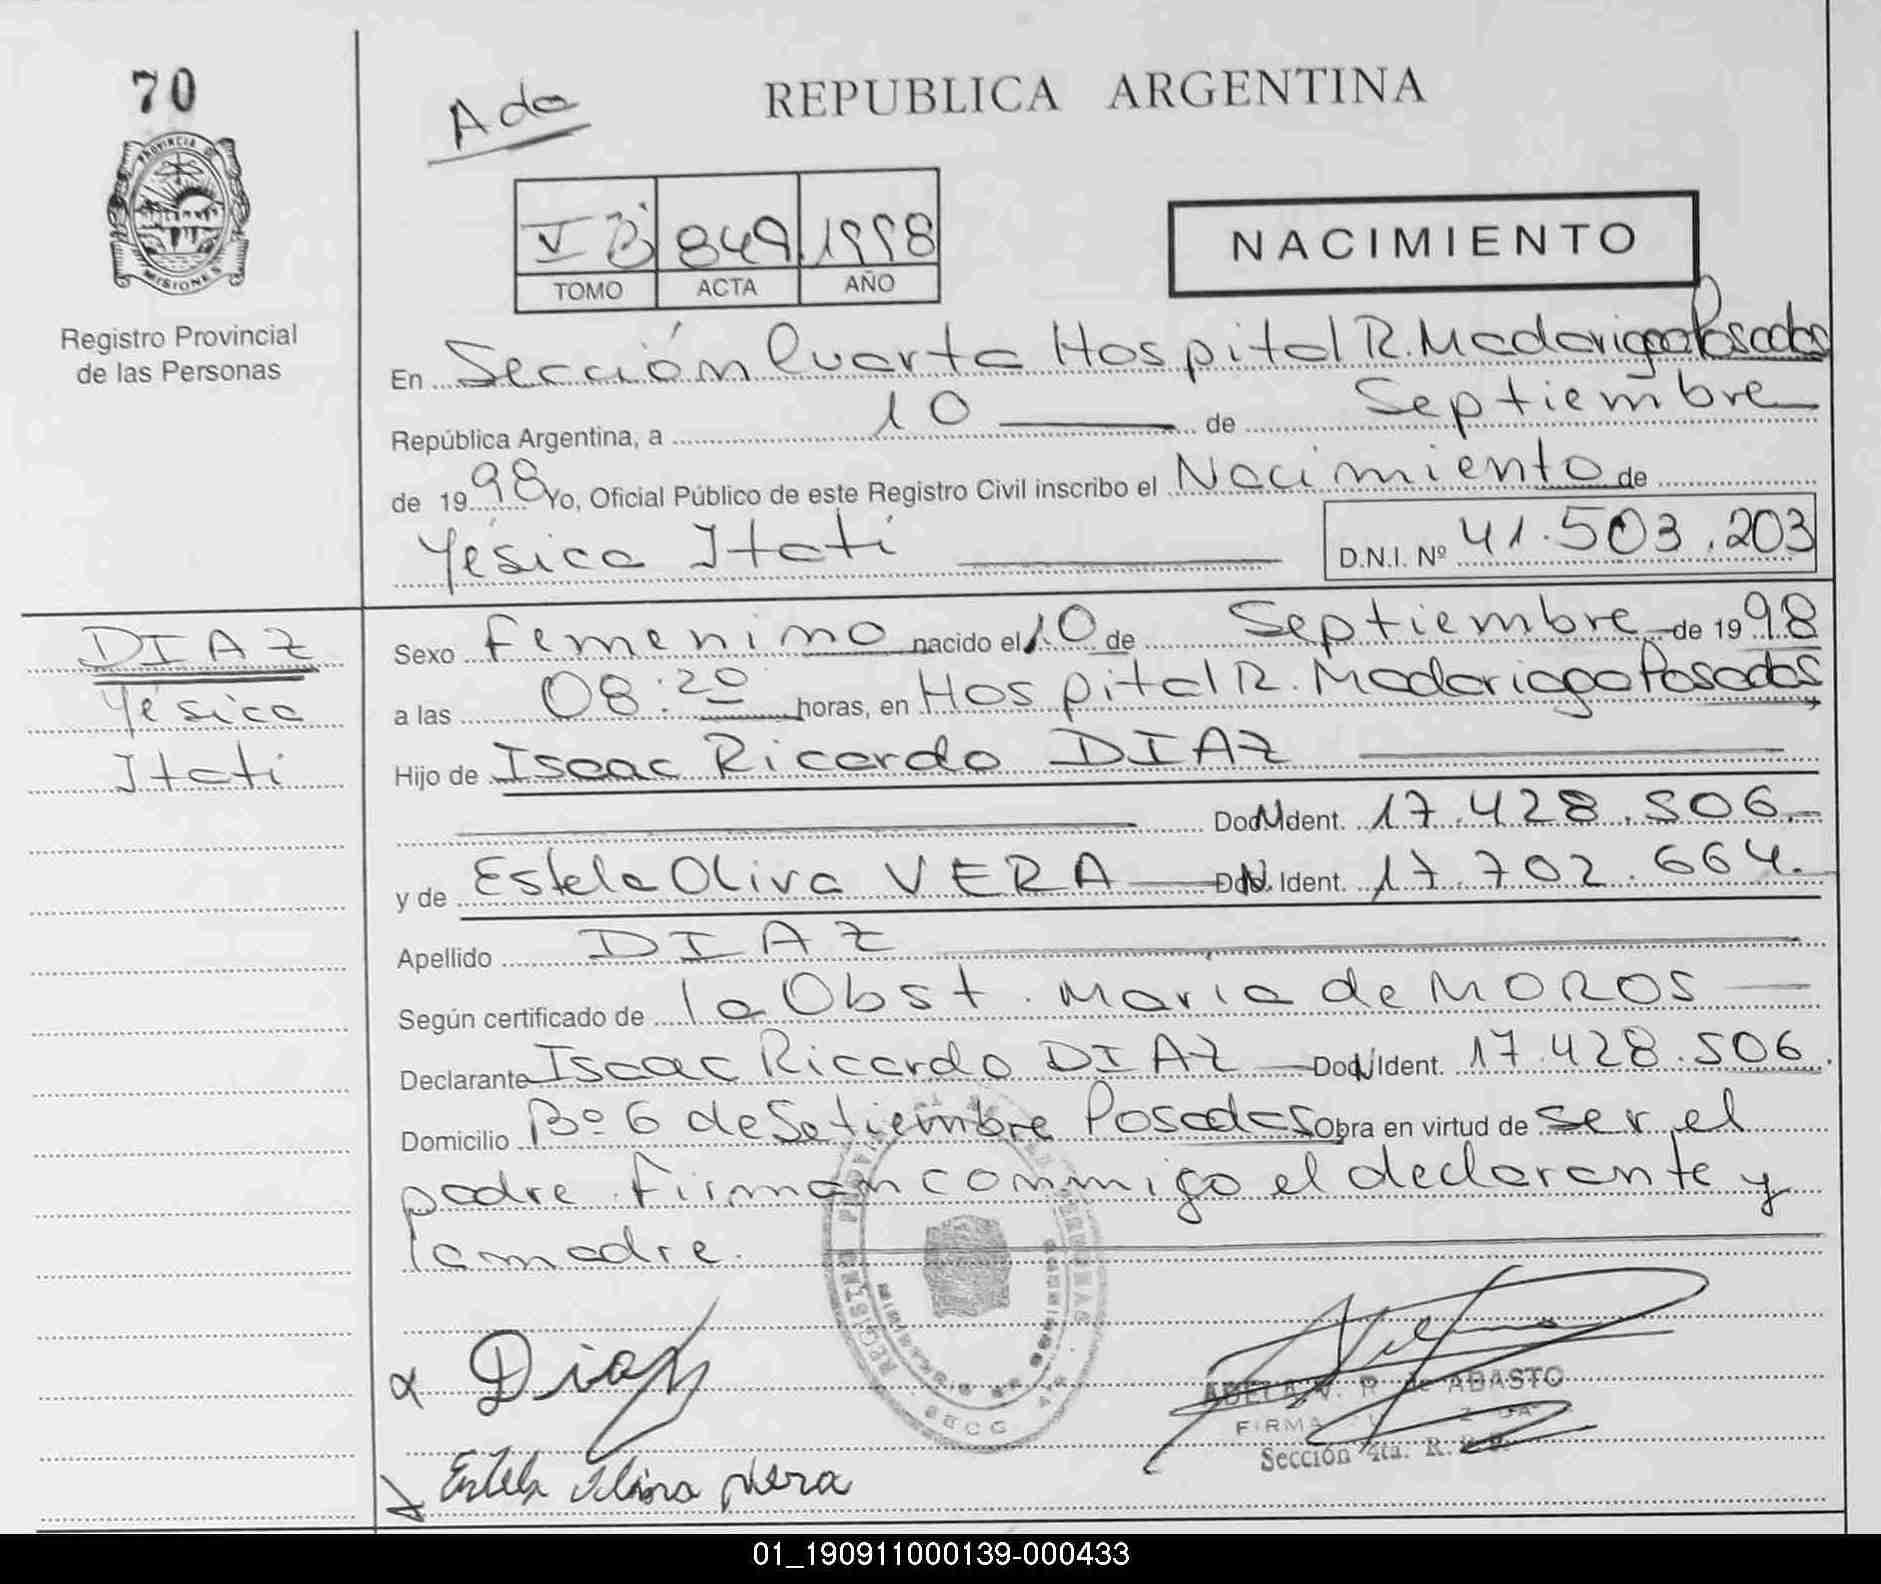 70
Ada
REPUBLICA ARGENTINA
PROVINCIA DE
MISIONES
V B 849 1998
TOMO ACTA AÑO
NACIMIENTO
Registro Provincial
de las Personas
En Sección Cuarta Hospital R. Madariaga Posadas
República Argentina, a 10 de Septiembre
de 1998 Yo, Oficial Público de este Registro Civil inscribo el Nacimiento de
Yésica Itatí D.N.I. Nº 41.503.203
DIAZ
Yésica
Itatí
Sexo femenino nacido el 10 de Septiembre de 1998
a las 08:20 horas, en Hospital R. Madariaga Posadas
Hijo de Isaac Ricardo DIAZ
Ident. 17.428.506.-
y de Estela Oliva VERA Ident. 17.702.664.
Apellido DIAZ
Según certificado de la Obst. Maria de MOROS
Declarante Isaac Ricardo DIAZ Ident. 17.428.506.
Domicilio Bº 6 de Setiembre Posadas Obra en virtud de ser el
padre. firman conmigo el declarante y
la madre.
Diaz
ADELA V. R. de ABASTO
FIRMA
Sección 4ta. R.
Estela Oliva Vera
01_190911000139-000433